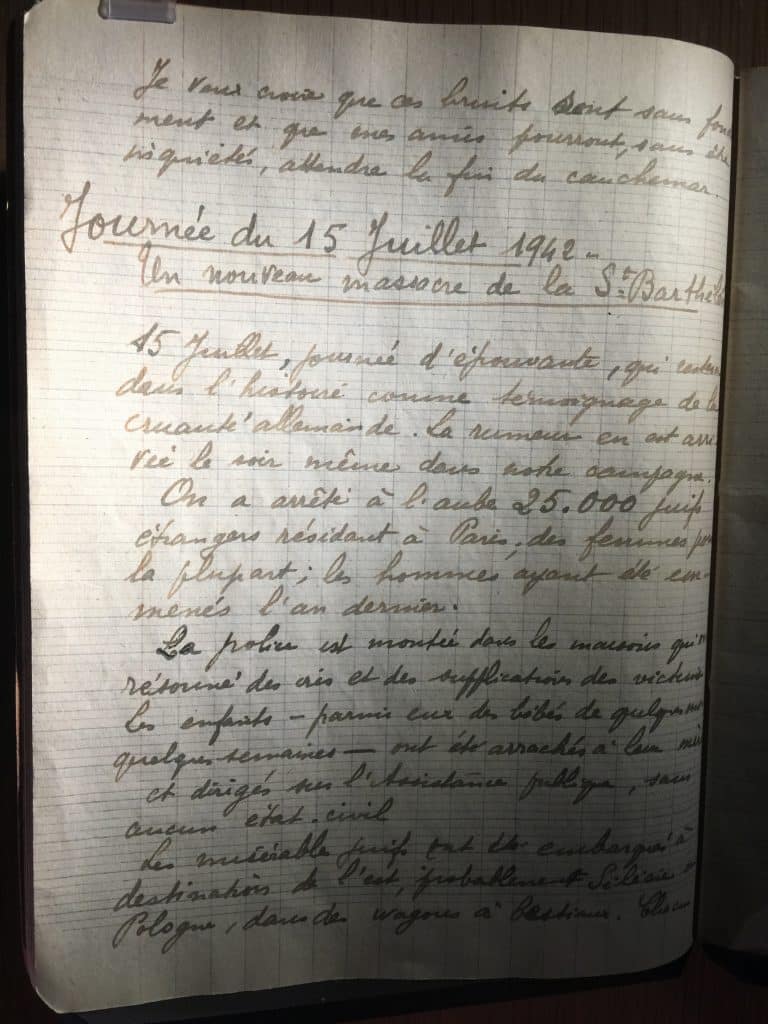 Je veux croire que ces bruits sont sans fonde
ment et que mes amis pourront, sans être
inquiétés, attendre la fin du cauchemar.
Journée du 15 Juillet 1942.
Un nouveau massacre de la St Barthélé
15 Juillet, journée d'épouvante, qui restera
dans l'histoire comme temoignage de la
cruauté allemande. La rumeur en est arri
vée le soir même dans notre campagne.
On a arrêté à l'aube 25.000 juifs
étrangers résidant à Paris; des femmes pour
la plupart; les hommes ayant été em-
menés l'an dernier.
La police est montée dans les maisons qui
résonné des cris et des supplications des victimes
Les enfants - parmi eux des bébés de quelques
quelques semaines - ont été arrachés à leur mère
et dirigés sur l'Assistance publique, sans
aucun état-civil
Les misérable juifs ont été embarqués à
destination de l'est, probablement Silésie ou
Pologne, dans des wagons à bestiaux. Chacun